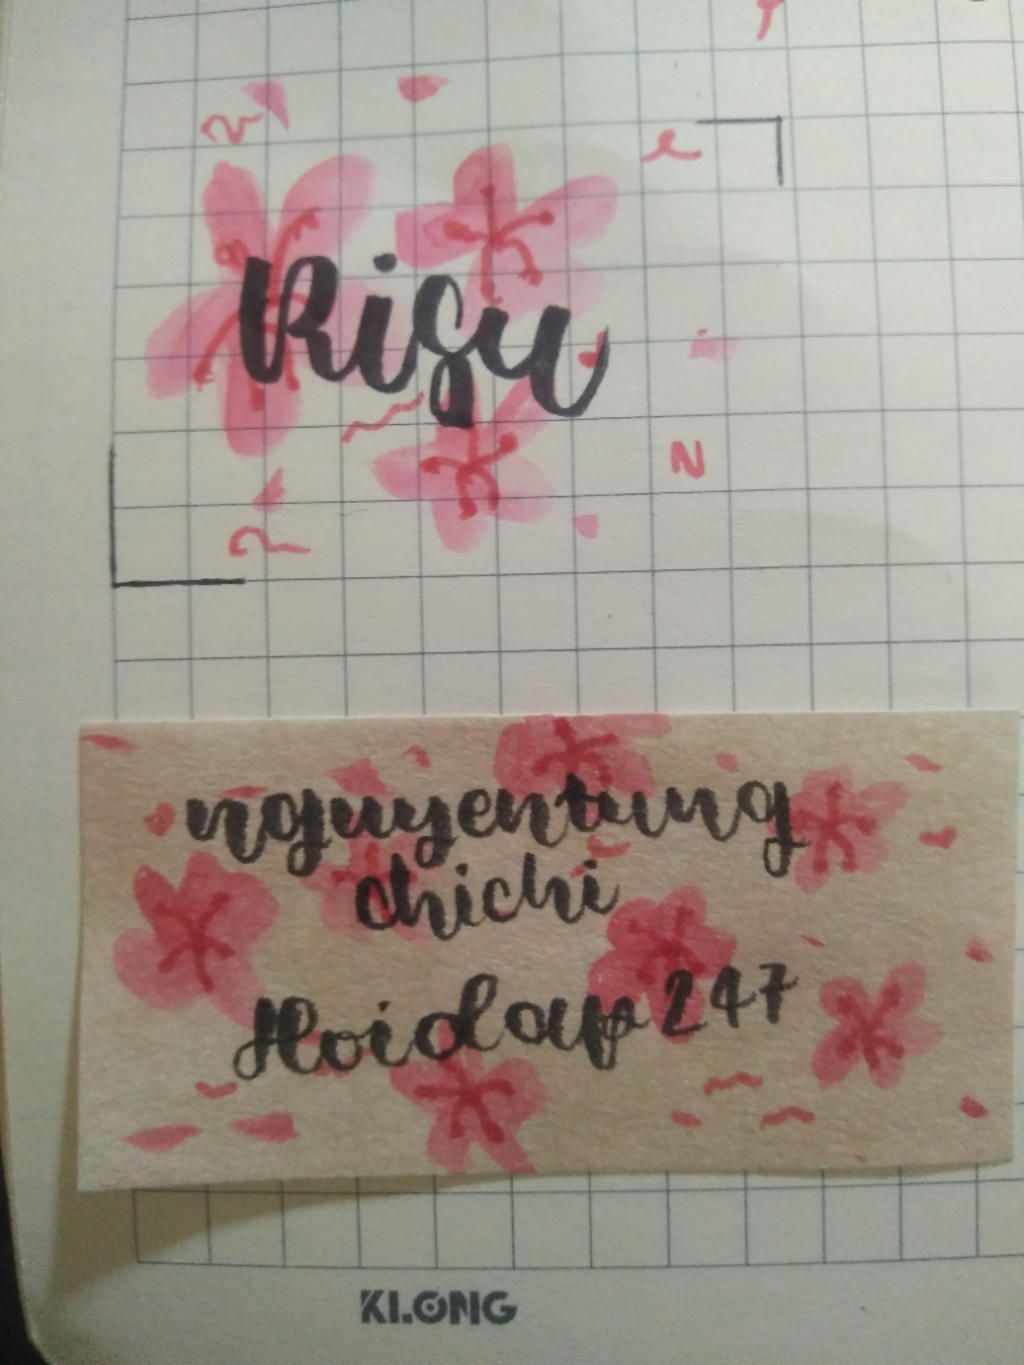 Risu
nguyentung
chichi
Hoidap 247
KLONG